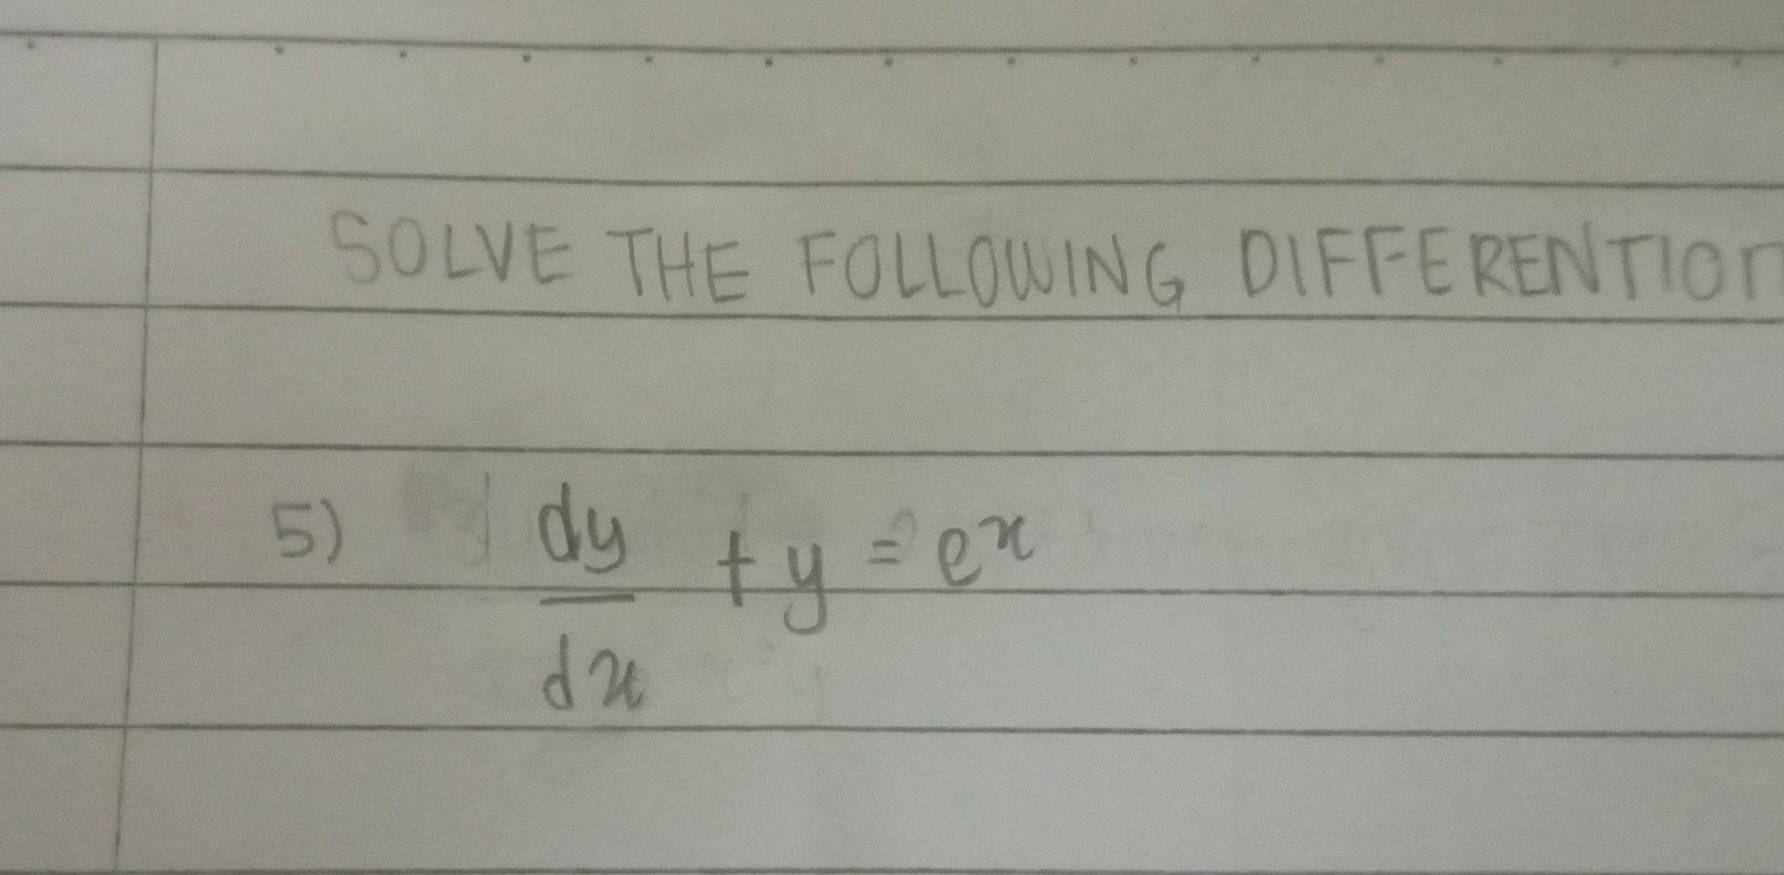 SOLVE THE FOLLOWING DIFFERENTION
5) dy/dx + y = e^x